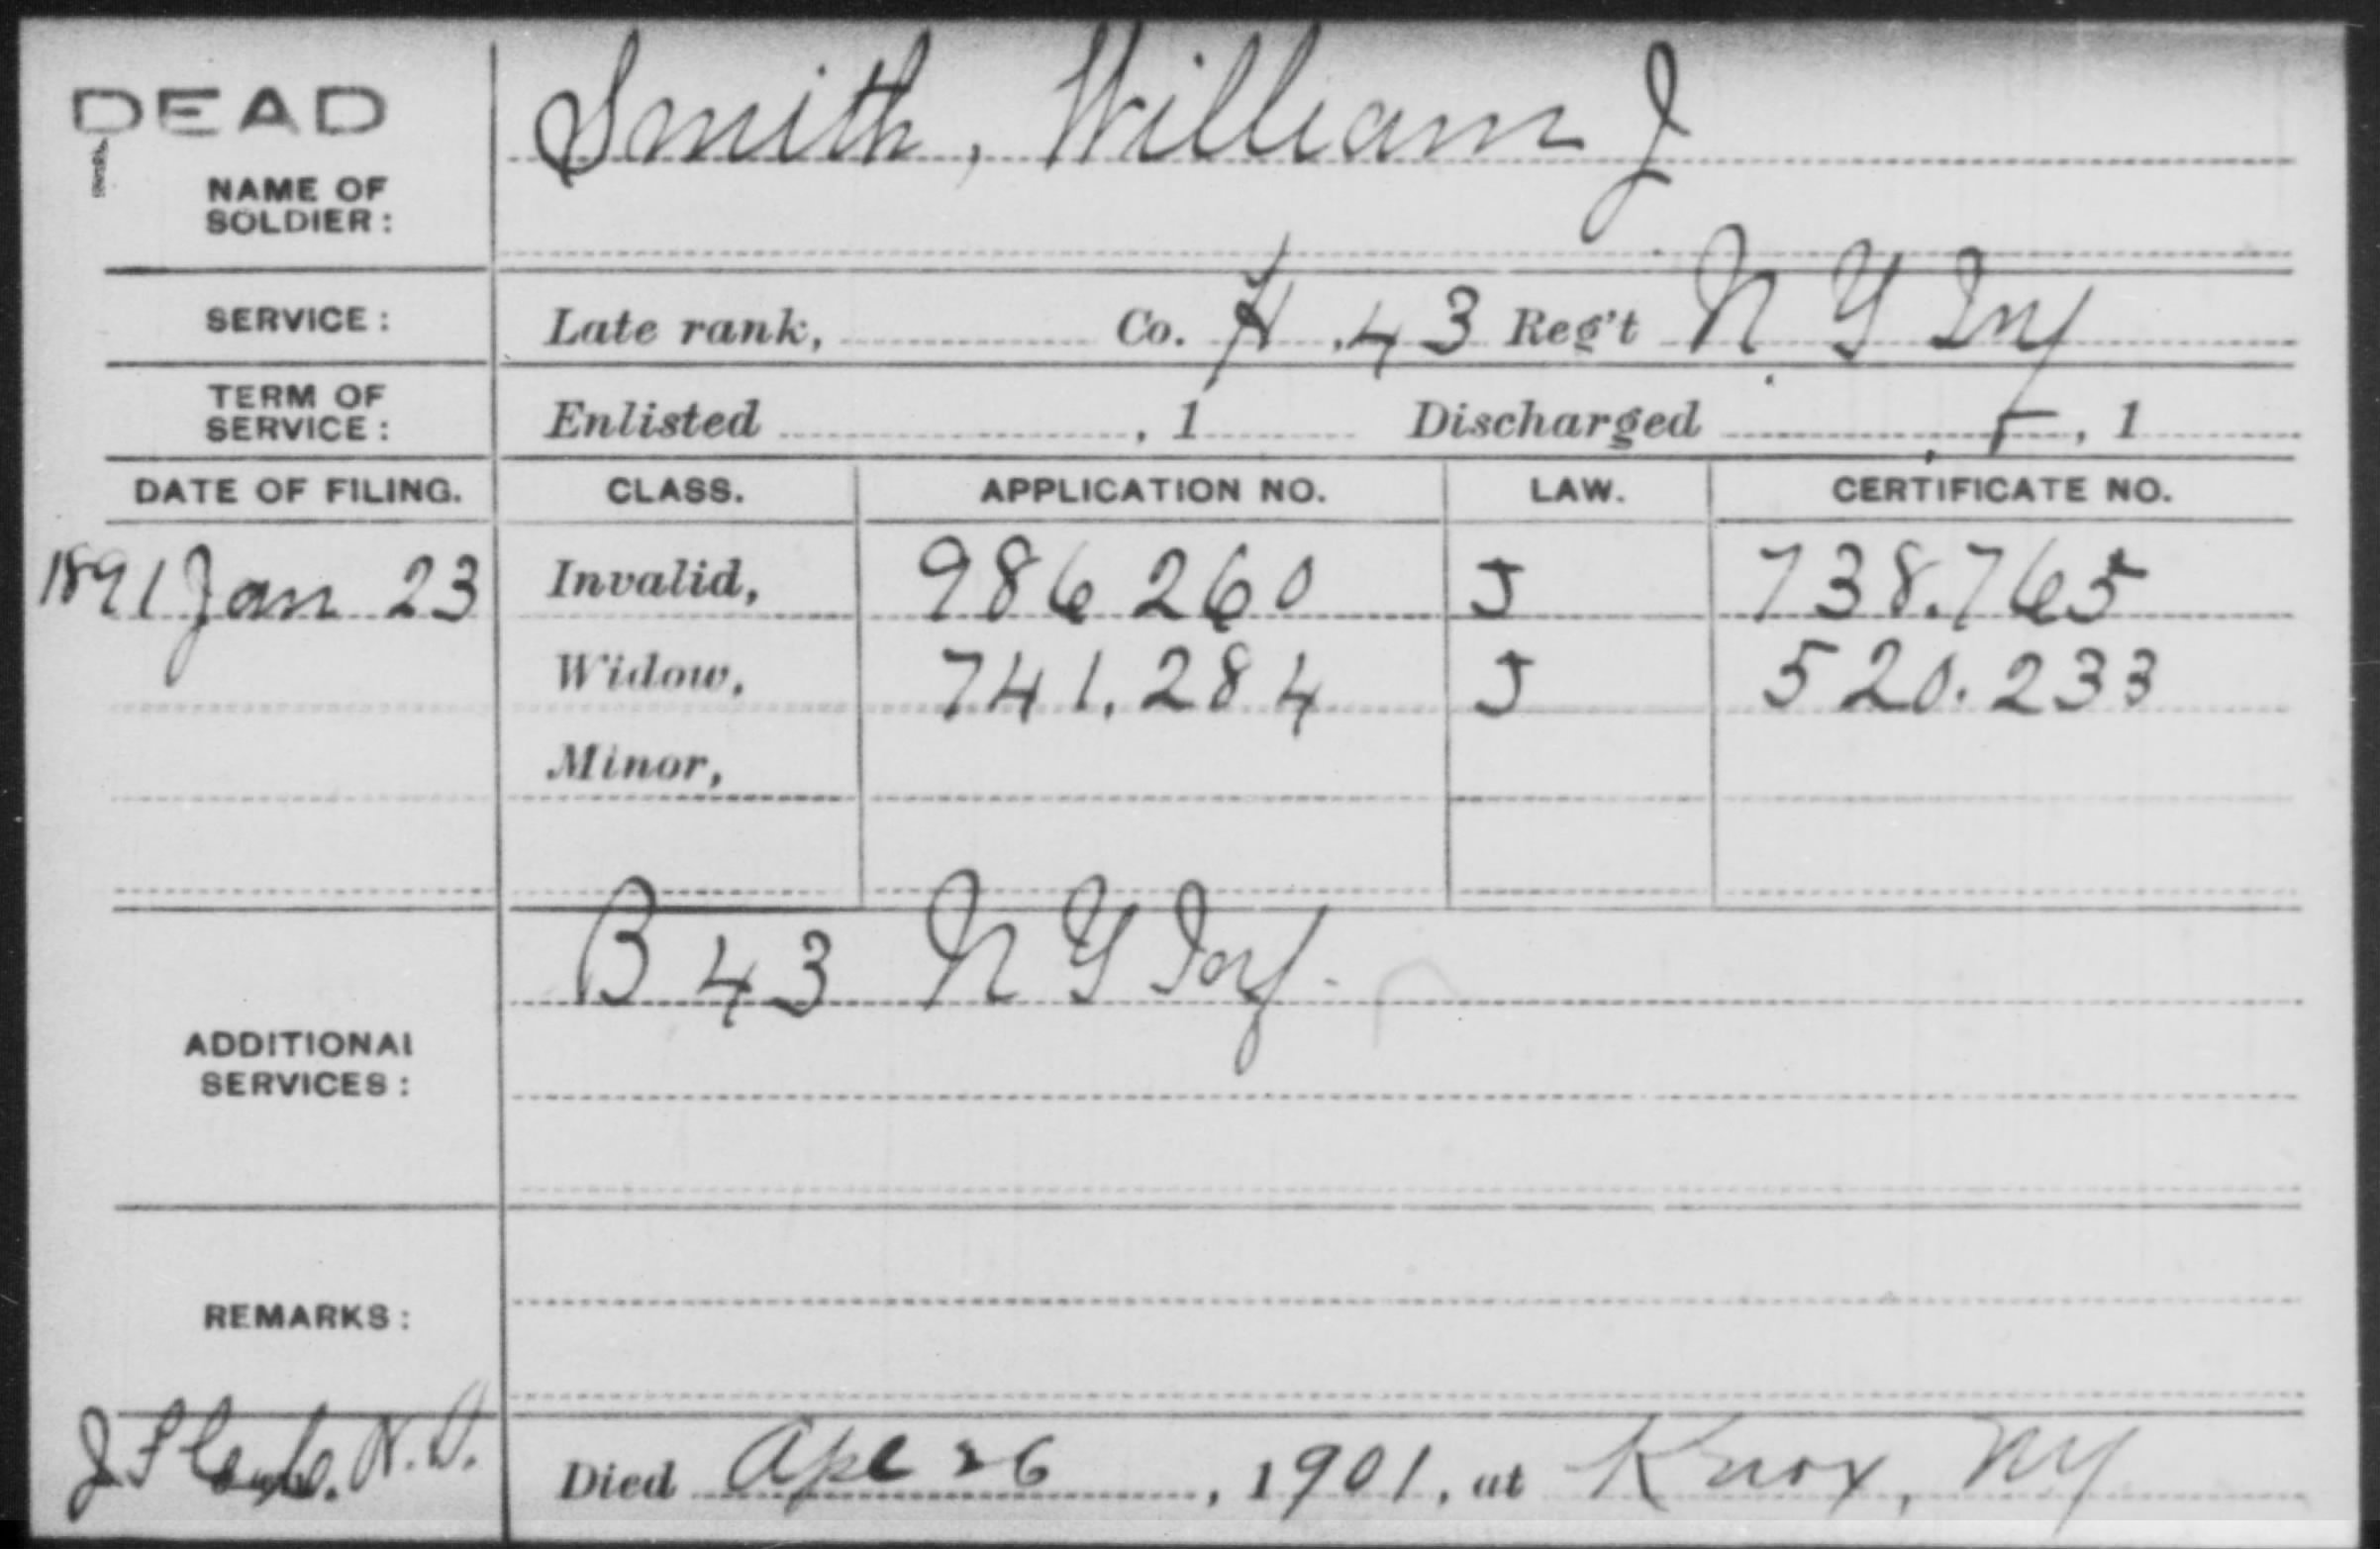 DEAD
NAME OF
SOLDIER:
Smith, William J
SERVICE:
Late rank, Co. H. 43 Reg't N Y Inf
TERM OF
SERVICE:
Enlisted , 1 Discharged , 1
DATE OF FILING. CLASS. APPLICATION NO. LAW. CERTIFICATE NO.
1891 Jan 23 Invalid, 986 260 J 738.765
Widow, 741.284 J 520.233
Minor,
B 43 N Y Inf.
ADDITIONAL
SERVICES:
REMARKS:
Died Apl 26, 1901, at Knox, NY